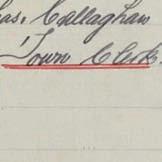 as. Callaghan
Town Clerk.